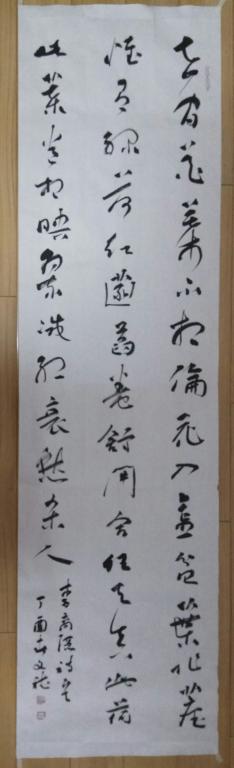 世間花葉不相倫花入金盆葉作塵
惟有綠荷紅菡萏卷舒開合任天真此荷
此葉常相映翠減紅衰愁殺人
李商隱詩
丁酉